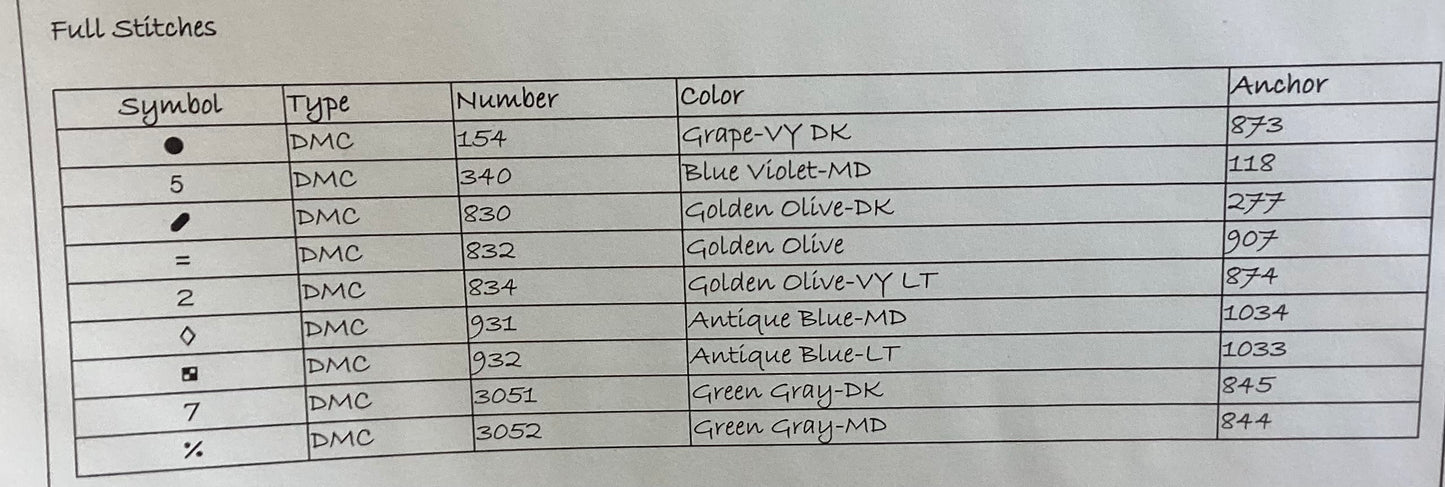 Full Stitches
Symbol Type Number Color Anchor
● DMC 154 Grape-VY DK 873
5 DMC 340 Blue Violet-MD 118
DMC 830 Golden Olive-DK 277
= DMC 832 Golden Olive 907
2 DMC 834 Golden Olive-VY LT 874
◊ DMC 931 Antique Blue-MD 1034
DMC 932 Antique Blue-LT 1033
7 DMC 3051 Green Gray-DK 845
٪ DMC 3052 Green Gray-MD 844